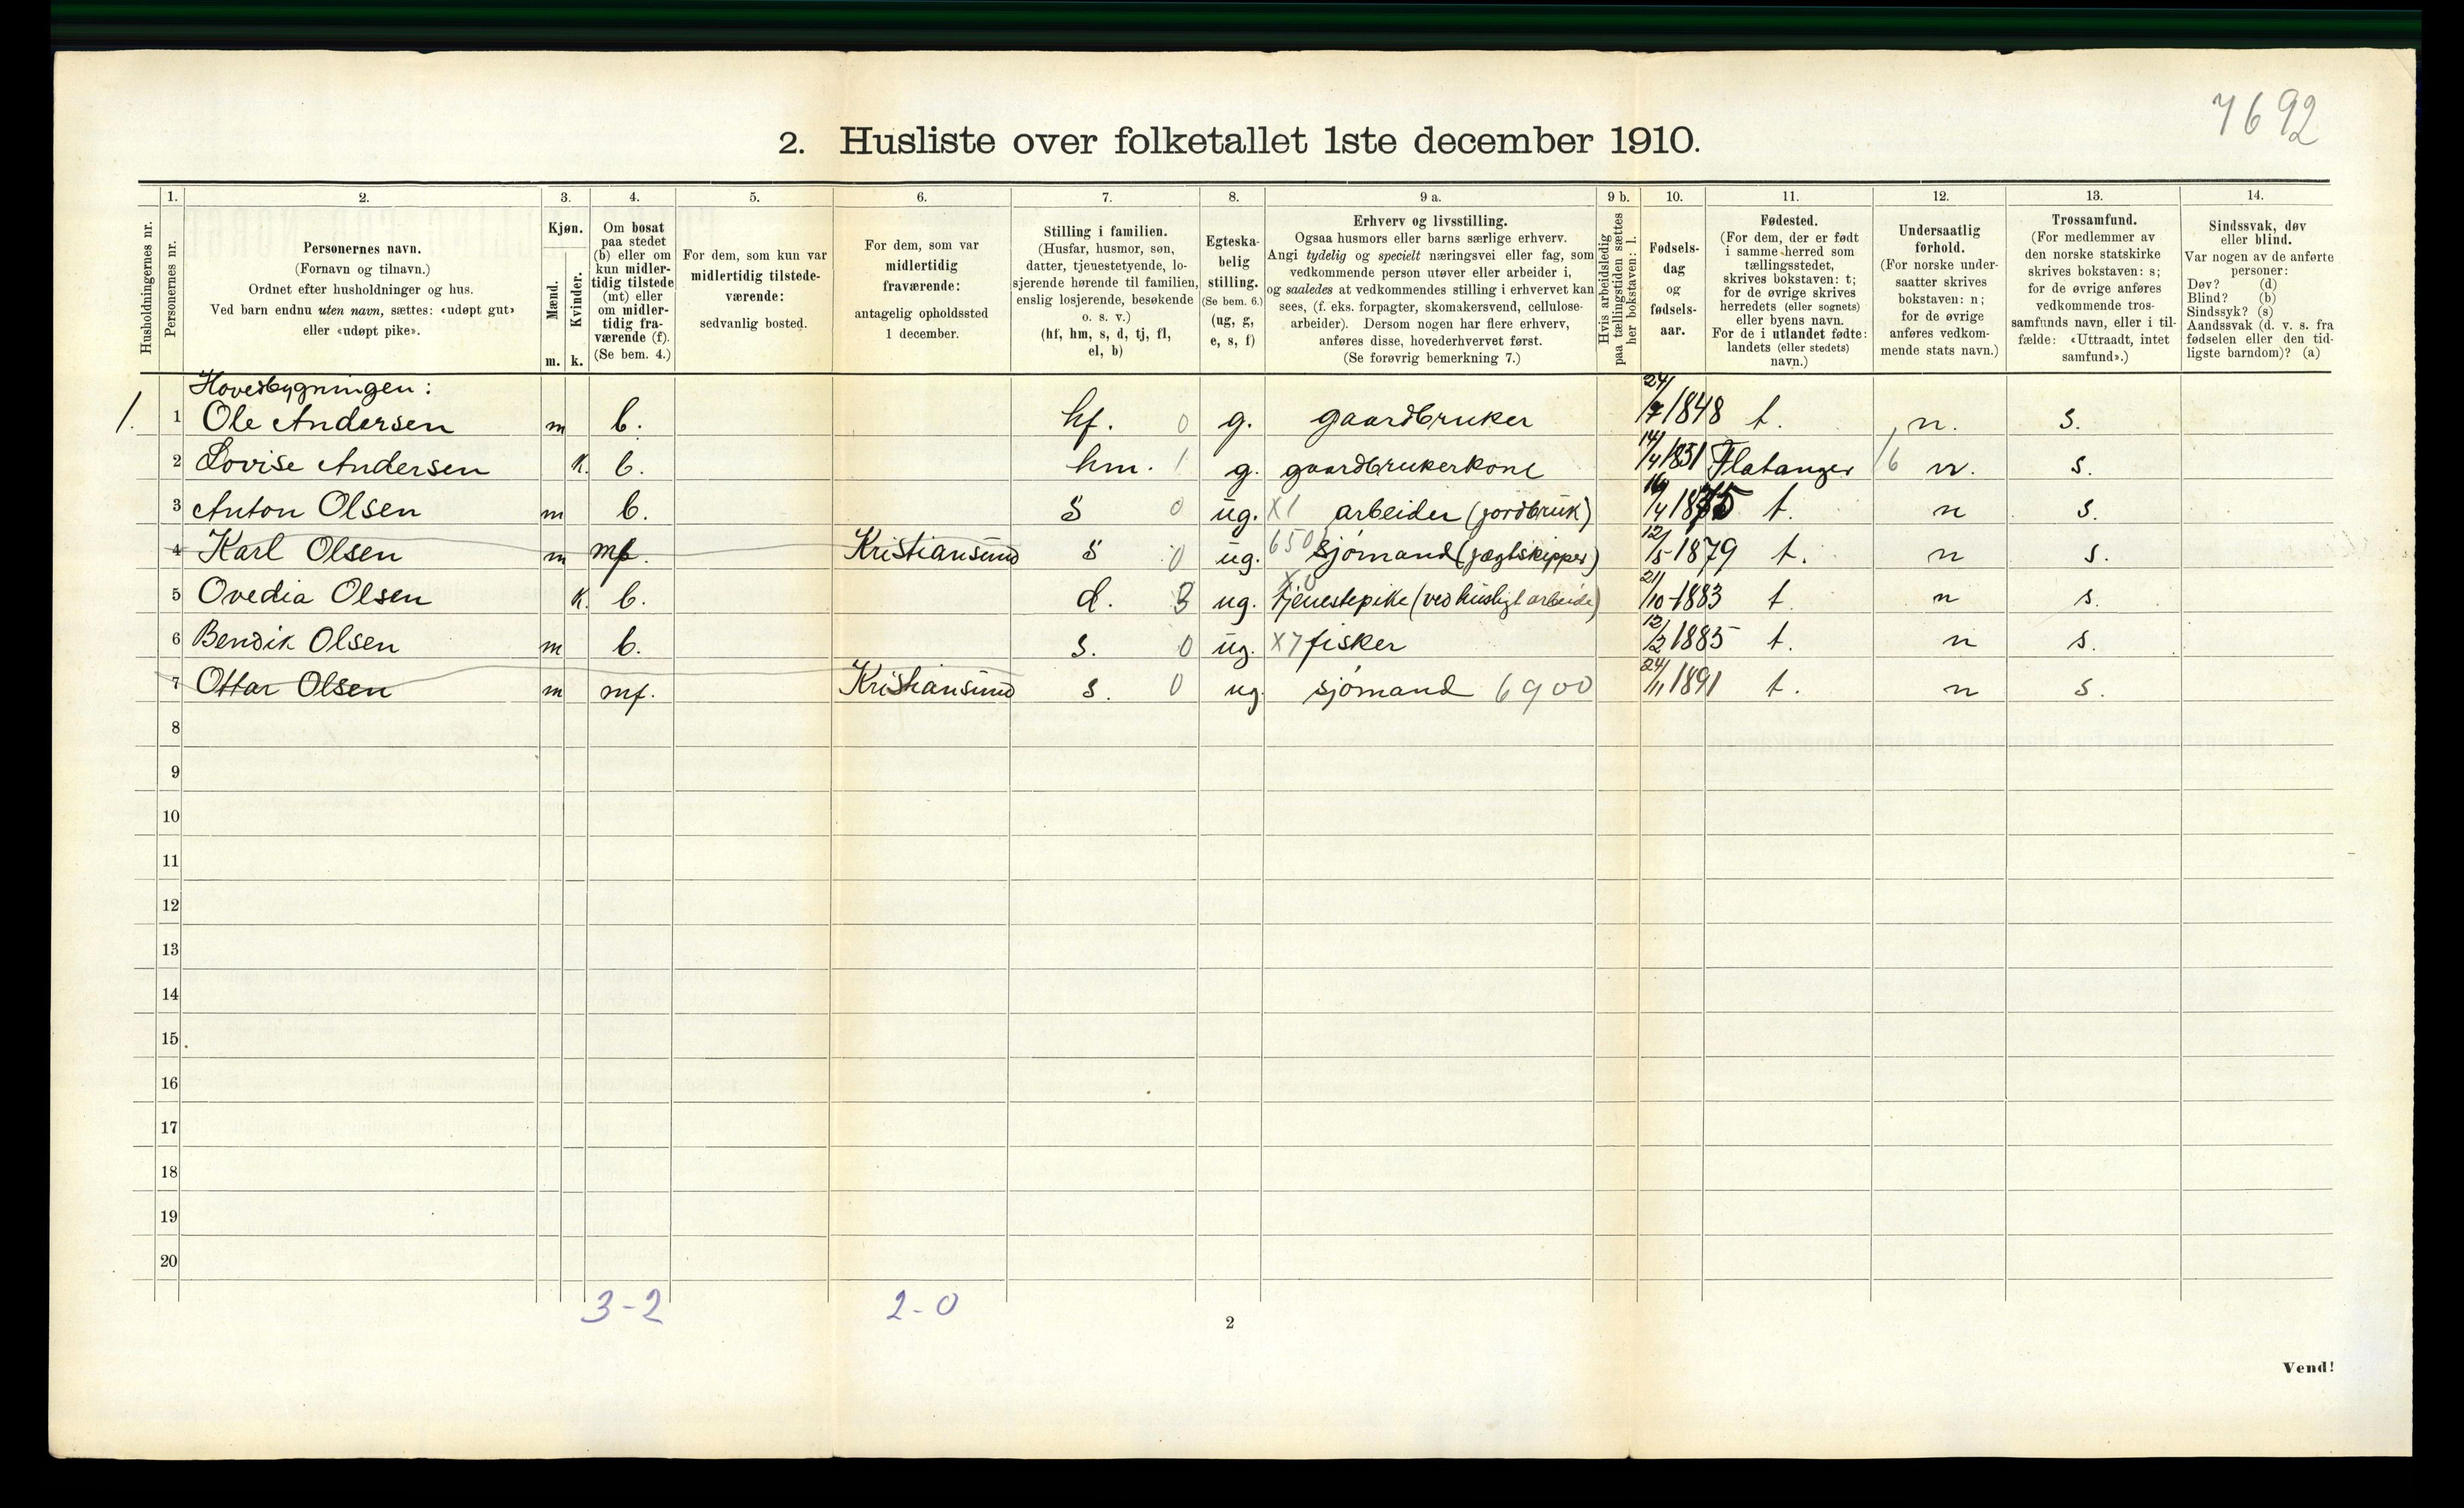 7692
2. Husliste over folketallet 1ste december 1910.
1. 2. 3. 4. 5. 6. 7. 8. 9 a. 9 b. 10. 11. 12. 13. 14.
Husholdningernes nr.
Personernes nr.
Personernes navn.
(Fornavn og tilnavn.)
Ordnet efter husholdninger og hus.
Ved barn endnu uten navn, sættes: «udøpt gut»
eller «udøpt pike».
Kjøn.
Mænd.
Kvinder.
m. k.
Om bosat
paa stedet
(b) eller om
kun midler-
tidig tilstede
(mt) eller
om midler-
tidig fra-
værende (f).
(Se bem. 4.)
For dem, som kun var
midlertidig tilstede-
værende:
sedvanlig bosted.
For dem, som var
midlertidig
fraværende:
antagelig opholdssted
1 december.
Stilling i familien.
(Husfar, husmor, søn,
datter, tjenestetyende, lo-
sjerende hørende til familien,
enslig losjerende, besøkende
o. s. v.)
(hf, hm, s, d, tj, fl,
el, b)
Egteska-
belig
stilling.
(Se bem. 6.)
(ug, g,
e, s, f)
Erhverv og livsstilling.
Ogsaa husmors eller barns særlige erhverv.
Angi tydelig og specielt næringsvei eller fag, som
vedkommende person utøver eller arbeider i,
og saaledes at vedkommendes stilling i erhvervet kan
sees, (f. eks. forpagter, skomakersvend, cellulose-
arbeider). Dersom nogen har flere erhverv,
anføres disse, hovederhvervet først.
(Se forøvrig bemerkning 7.)
Hvis arbeidsledig
paa tællingstiden sættes
her bokstaven: l.
Fødsels-
dag
og
fødsels-
aar.
Fødested.
(For dem, der er født
i samme herred som
tællingsstedet,
skrives bokstaven: t;
for de øvrige skrives
herredets (eller sognets)
eller byens navn.
For de i utlandet fødte:
landets (eller stedets)
navn.)
Undersaatlig
forhold.
(For norske under-
saatter skrives
bokstaven: n;
for de øvrige
anføres vedkom-
mende stats navn.)
Trossamfund.
(For medlemmer av
den norske statskirke
skrives bokstaven: s;
for de øvrige anføres
vedkommende tros-
samfunds navn, eller i til-
fælde: «Uttraadt, intet
samfund».)
Sindssvak, døv
eller blind.
Var nogen av de anførte
personer:
Døv? (d)
Blind? (b)
Sindssyk? (s)
Aandssvak (d. v. s. fra
fødselen eller den tid-
ligste barndom)? (a)
Hovedbygningen:
1. 1 Ole Andersen m b. hf. 0 g. gaardbruker 24/7 1848 t. n. s.
2 Lovise Andersen k. b. hm. 1 g. gaardbrukerkone 14/4 1851 Flatanger 16 n. s.
3 Anton Olsen m b. s 0 ug. X1 arbeider (jordbruk) 16/4 1875 t. n s.
4 Karl Olsen m mf. Kristiansund s 0 ug. 650 sjømand (jægtskipper) 12/5 1879 t. n s.
5 Ovedia Olsen k. b. d. 3 ug. tjenestepike (ved husligt arbeide) 21/10 1883 t. n s.
6 Bendik Olsen m b. s. 0 ug. X7 fisker 12/2 1885 t. n s.
7 Ottar Olsen m mf. Kristiansund s. 0 ug. sjømand 6900 24/11 1891 t. n s.
8
9
10
11
12
13
14
15
16
17
18
19
20
3-2 2-0
2
Vend!